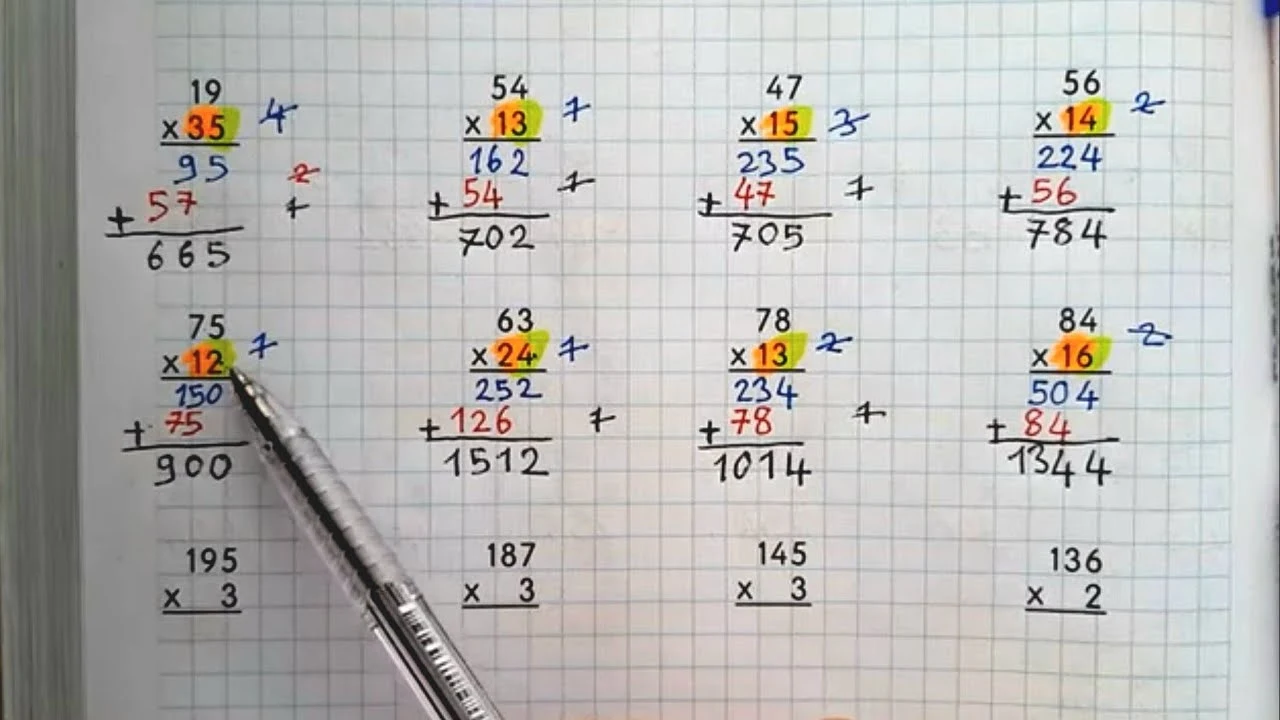 19
x 35 4
95
2
+ 57 1
665
54
x 13 1
162
+ 54 1
702
47
x 15 3
235
+ 47 1
705
56
x 14 2
224
+ 56
784
75
x 12 1
150
+ 75
900
63
x 24 1
252
+ 126 1
1512
78
x 13 2
234
+ 78 1
1014
84
x 16 2
504
+ 84
1344
195
x 3
187
x 3
145
x 3
136
x 2